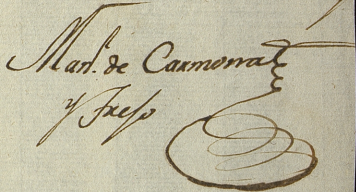 Man.l de Carmona
y Freso